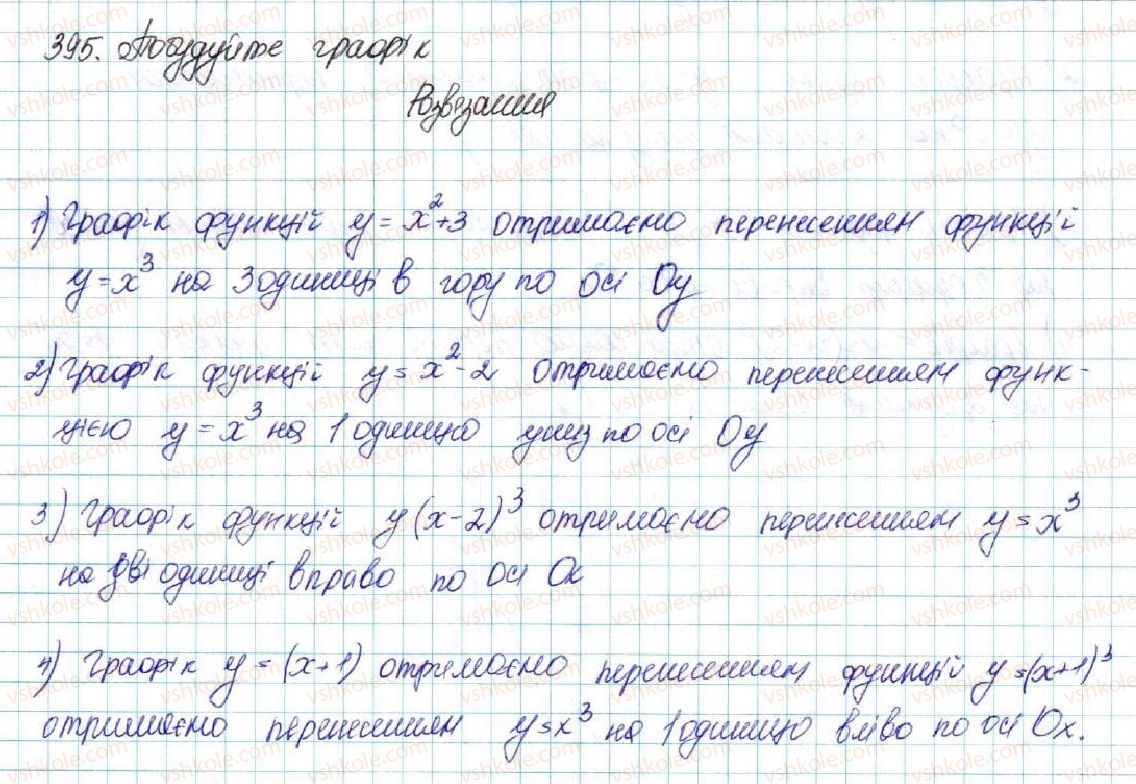 395. Побудуйте графік
Розвязання
1) Графік функцій y = x²+3 отримаємо перенесенням функцій
y = x³ на 3 одиниці в гору по осі Oy
2) Графік функцій y = x²-2 отримаємо перенесенням функ-
цією y = x³ на 1 одиницю униз по осі Oy
3) Графік функцій y (x-2)³ отримаємо перенесенням y = x³
на дві одиниці вправо по осі Ox
4) Графік y = (x+1) отримаємо перенесенням функцій y = (x+1)³
отримаємо перенесенням y = x³ на 1 одиницю вліво по осі Ox.